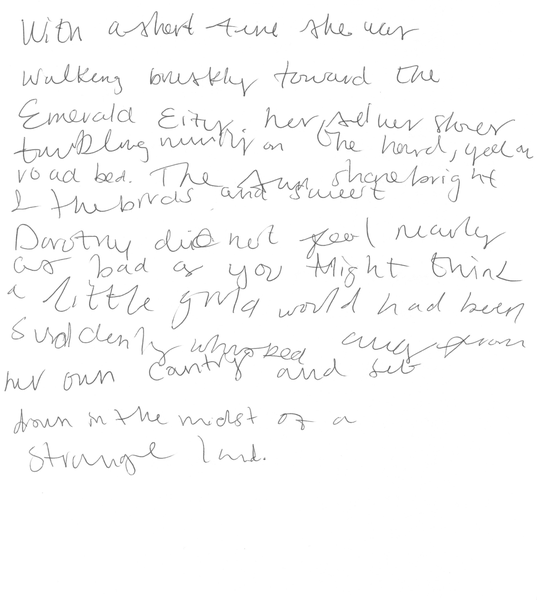 With a short time she was
walking briskly toward the
Emerald City, her silver shoes
tinkling merrily on the hard, yellow
road bed. The sun shone bright
& the birds and sweet
Dorothy did not feel nearly
as bad as you might think
a little girl would had been
suddenly whisked away from
her own country and set
down in the midst of a
strange land.